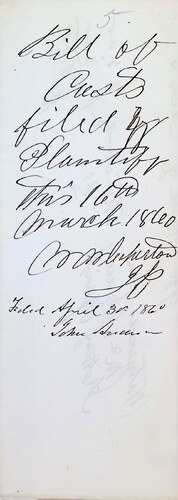 5
Bill of
Costs
filed by
Plaintiff
this 16th
March 1860
JP
Filed April 30 1860
John